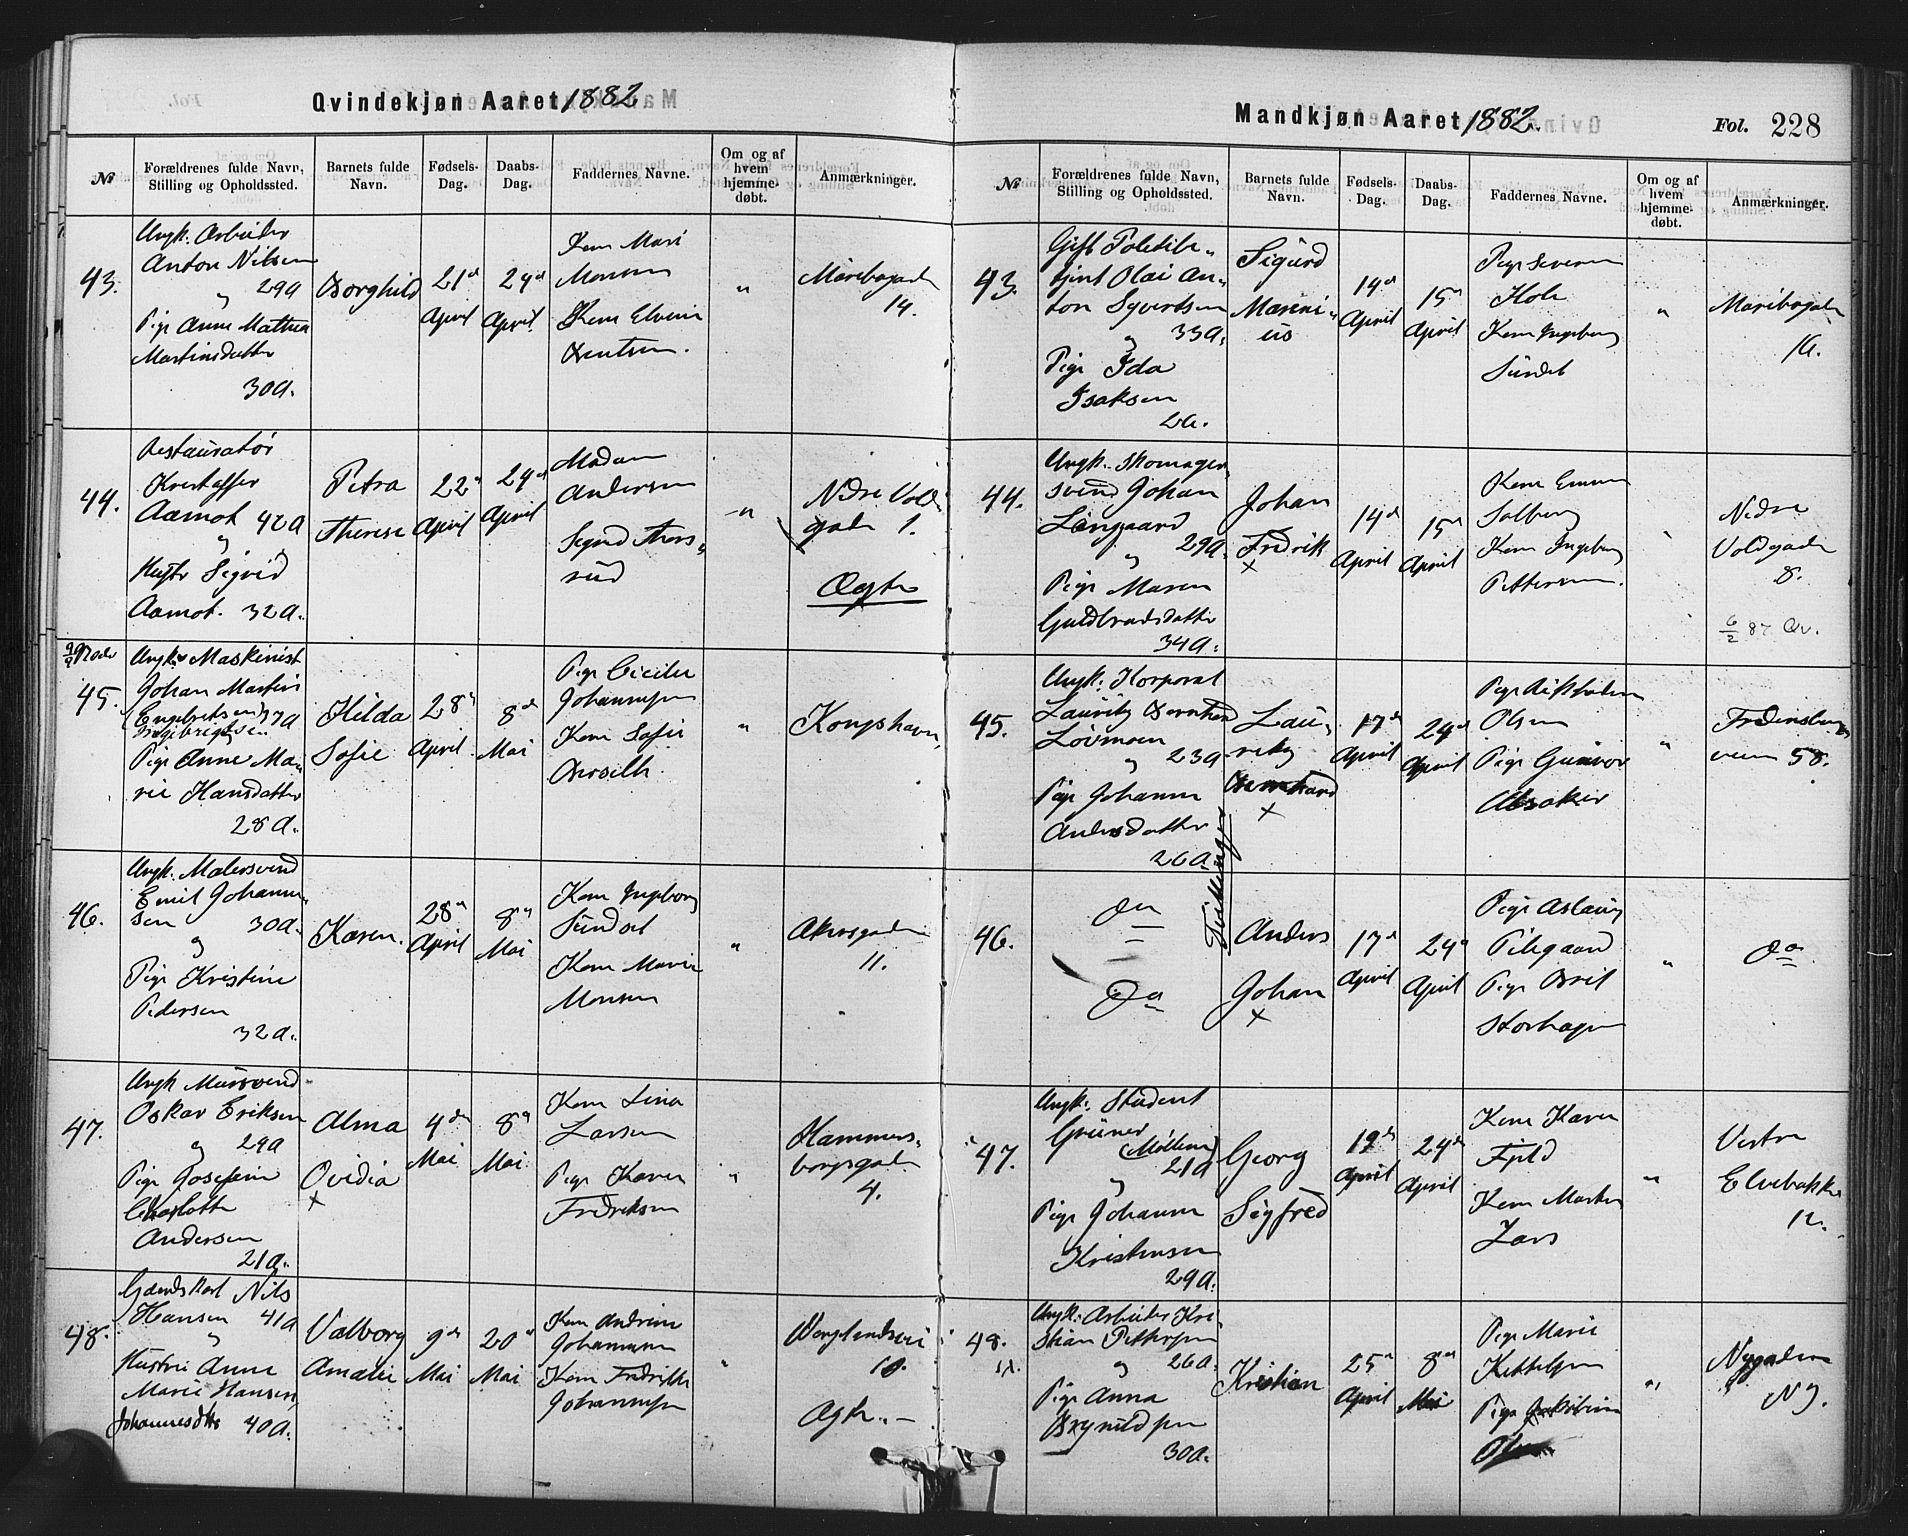 Qvindekjøn Aaret 1882.
№
Forældrenes fulde Navn, Stilling og Opholdssted.
Barnets fulde Navn.
Fødsels-Dag.
Daabs-Dag.
Faddernes Navne.
Om og af hvem hjemme-døbt.
Anmærkninger.
43.
Ungk. Arbeider
Anton Nilsen
29 a
og
Pige Anne Mathea
Martinsdatter
30 a.
Borghild
21de
April
24de
April.
Kone Mari
Monsen
Kone Elvine
Bentsen.
"
Maribogaden
14.
44.
Restauratør
Kristoffer
Aamot 42 a
og
Hustr Sigrid
Aamot. 32 a.
Petra
Therese
22
April
24de
April
Madam
Andersen
Sigrid Thors-
rud
"
Nedre Vold
gade 1.
Ægte
45.
Ungk. Maskinist
Johan Martin
Engebretsen 37 a
Ingebrigtsen
Pige Anne Ma-
rie Hansdatter
28 a.
Hilda
Sofie
28
April.
8de
Mai
Pige Cicilie
Johannesen
Kone Sofie
"
Kongshavn
46.
Ungk. Malersvend
Emil Johann-
sen 30 a.
og
Pige Kristine
Pedersen
32 a.
Karen.
28
April
8
Mai
Kone Ingeborg
Sundset
Kone Marie
Monsen
"
Akersgaden
11.
47.
Ungk Mursvend
Oskar Eriksen
og 29 a
Pige Josefine
Charlotte
Andersen
21 a.
Alma
Ovidia
x
4de
Mai
8
Mai.
Kone Lina
Larsen
Pige Karen
Fredriksen
"
Hammers-
borggaden
4.
48.
Gaardskarl Nils
Hansen 41 a
og
Hustru Anne
Marie Hansen
Johannesdtr 40 a.
Valborg
Amalie
9de
Mai
20
Mai
Kone Andrine
Johannesen
Kone Fredrikke
Johannesen
"
Wergelandsvei
10.
Ægte. –
Mandkjøn Aaret 1882.
Fol. 228
№
Forældrenes fulde Navn, Stilling og Opholdssted.
Barnets fulde Navn.
Fødsels-Dag.
Daabs-Dag.
Faddernes Navne.
Om og af hvem hjemme-døbt.
Anmærkninger.
43.
Gift Politibe-
tjent Olai An-
ton Syvertsen
og 33 a.
Pige Ida
Isaksen
26.
Sigurd
Marini-
us
14de
April
15
April
Pige Severine
Hole
Kone Ingeborg
Sundet
"
Maribogaden
16.
44.
Ungk. Skomager-
svend Johan
Langaard
" 29 a.
Pige Maren
Guldbrandsdatter
34 a.
Johan
Fredrik
x
14de
April
15
April
Kone Emma
Solberg
Kone Ingeborg
Pettersen.
"
Nedre
Voldgade
8.
6/2 87 Qv.
45.
Ungk. Korporal
Lauritz Bernhard
Lovmoen
og 23 a
Pige Johanne
Andersdatter
26 a
Lau-
ritz
Bernhard
x
Tvillinger
17de
April
24de
April
Olsen
Pige Gunvor
Alsaker
"
veien 58.
46.
Da
Da
Anders
Johan
x
17de
April
24
April
Pige Aslaug
Pilegaard
Pige Brit
Storhagen
"
Da
47.
Ungk. Student
Grüner
(Møllens)
21 a
og
Pige Johanne
Kristensen
29 a.
Georg
Sigfred
19de
April
24de
April
Kone Karen
Fjeld
Kone Marthe
Lars
"
Vestre
Elvebakke
12.
48.
Ungk. Arbeider Kri-
stian Pettersen
og 26 a.
Pige Anna
Brynildsen
30 a.
Kristian
25
April
8de
Mai
Pige Marie
Kettelsen
Pige Jakobine
Olsen
"
Nygaden